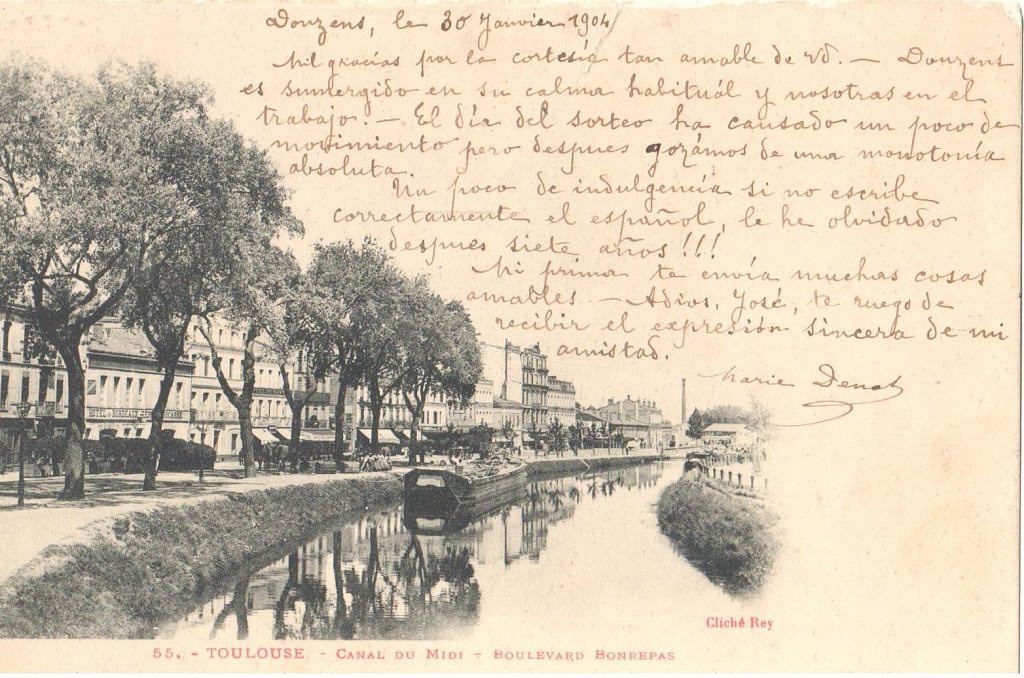 Douzens, le 30 Janvier 1904
Mil gracias por la cortesía tan amable de Vd. — Douzens
es sumergido en su calma habituál y nosotras en el
trabajo. — El día del sorteo ha causado un poco de
movimiento pero despues gozamos de una monotonía
absoluta.
Un poco de indulgencia si no escribe
correctamente el español, le he olvidado
despues siete años!!!
Mi prima te envía muchas cosas
amables. — Adios, José, te ruego de
recibir el expresión sincera de mi
amistad.
Marie Denat
HOTEL DE BORDEAUX
Cliché Rey
55. - TOULOUSE. - CANAL DU MIDI - BOULEVARD BONREPAS